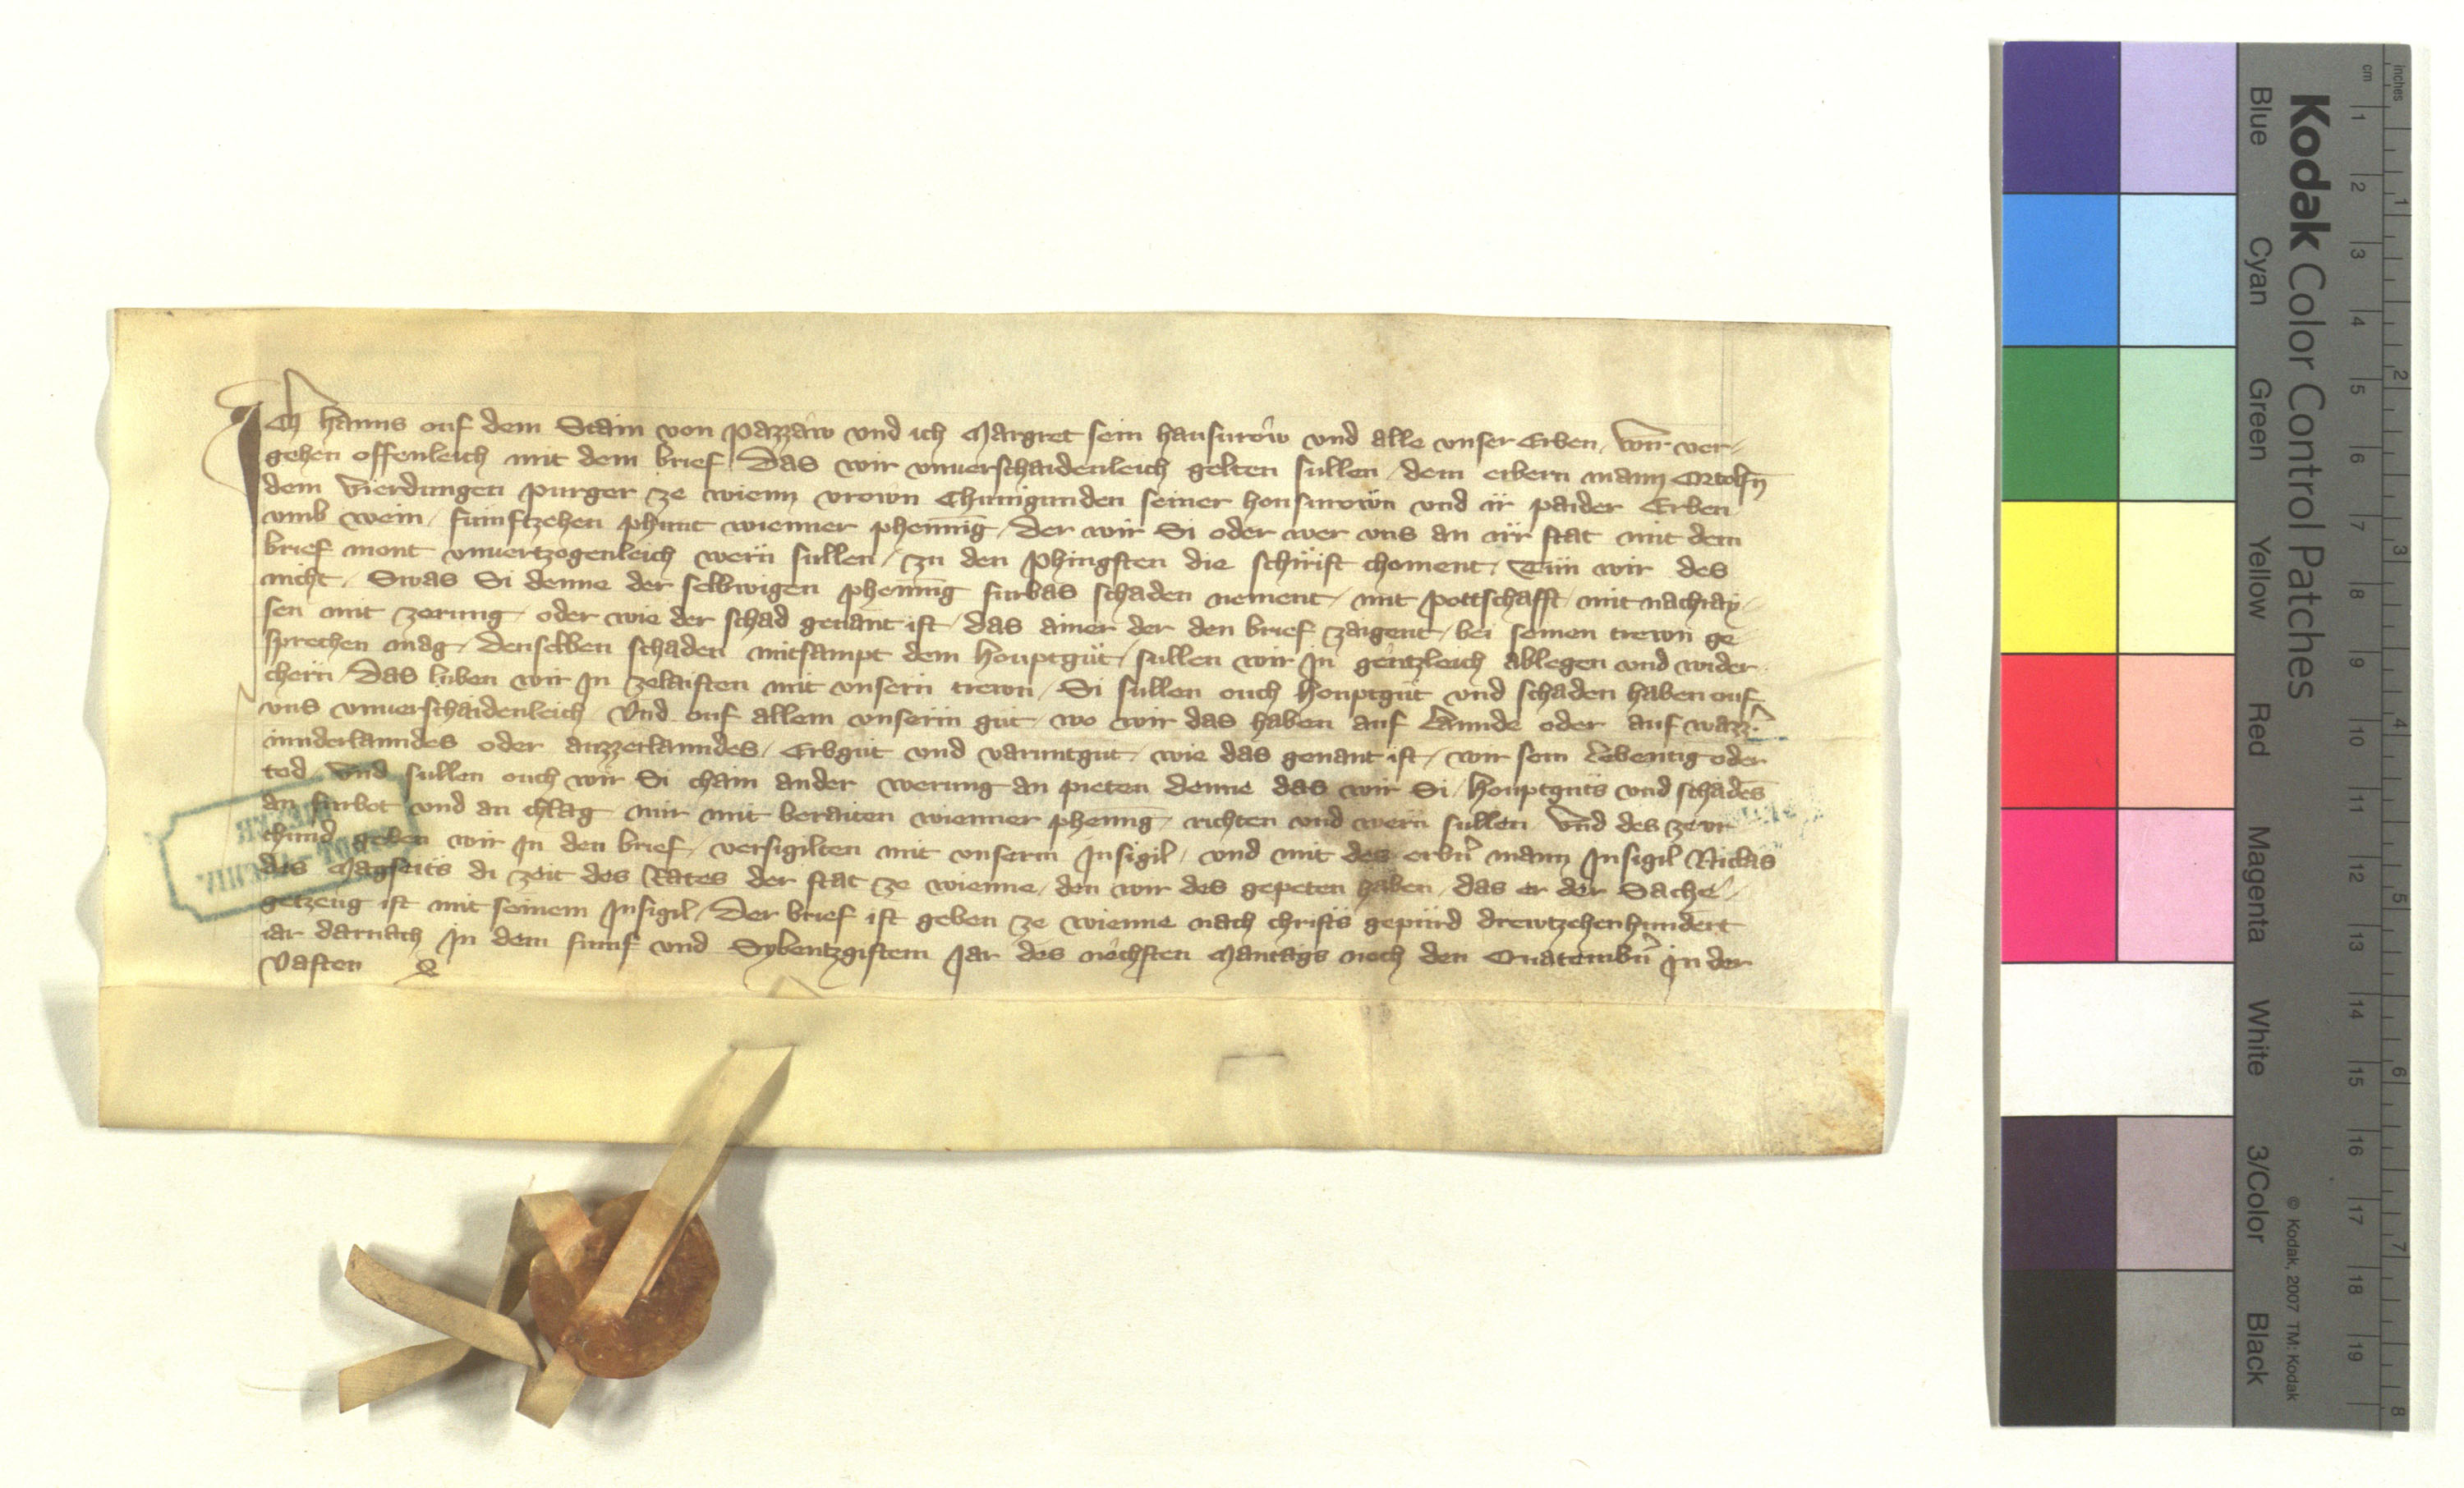 Ich Hanns ouf dem Stain von Pazzaw vnd ich Margret sein hausurow vnd alle vnser Erben / Wir ver-
gehen offenleich mit dem brief / Das wir vnuerschaidenleich gelten sullen / dem erbern mann Ortolfn̄
dem Vierdungen purger ze wienn vrown Chunigunden seiner housurown vnd ir paider Erben
vmb wein / fumftzehen phunt wienner phennig / der wir Si oder wer vns an irr stat mit dem
brief mont vnuertzogenleich wern sullen / zu den Phingsten die schirist choment / Tün wir des
nicht / Swas Si denne der selbwigen phennīg furbas schaden nement / mit pottschafft / mit nachray-
sen mit zerung / oder wie der schad genant ist / das ainer der den brief zaigent / bei seinen trewn ge-
sprechen mag / denselben schaden mitsampt dem Houptgüt / sullen wir In gentzleich ablegen vnd wider-
chern / Das luben wir In zelaisten mit vnsern trewn / Si sullen ouch Houptgüt vnd schaden haben ouf
vns vnuerschaidenleich Vnd ouf allem vnserm güt / wo wir das haben auf Lannde oder auf wazz̄
innderlanndes oder auzzerlanndes / Erbgüt vnd varuntgut / wie das genant ist / wir sein Lebentig oder
tod / Vnd sullen ouch wir Si chain ander werung an pieten denne das wir Si / Houptguts vnd schadēs
an furbot vnd an chlag nür mit beraiten wienner phennīg / richten vnd wern sullen Vnd des ze vr-
chund geben wir In den brief / versigilten mit vnserm Insigil / vnd mit des erbn̄ mann Insigil Niclas
des Magseits di zeit des Rates der stat ze wienne / den wir des gepeten haben / das er der Sache /
getzeug ist mit seinem Insigil / Der brief ist geben ze wienne nach christs gepürd drewtzehenhundert
iar darnach In dem fumf vnd Sybentzgistem Jar des nechsten Mantags noch den Quatembn̄ In der
Vasten
Kodak Color Control Patches
Blue Cyan Green Yellow Red Magenta White 3/Color Black
© Kodak, 2007 TM: Kodak
cm 1 2 3 4 5 6 7 8 9 10 11 12 13 14 15 16 17 18 19
inches 1 2 3 4 5 6 7 8